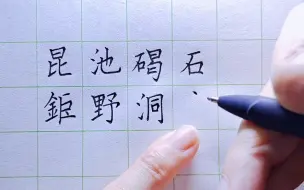 昆池碣石
鉅野洞